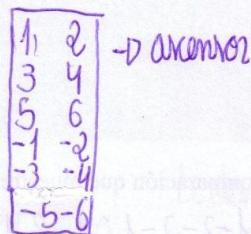 1, 2 → ascensor
3 4
5 6
-1 -2
-3 -4
-5 -6